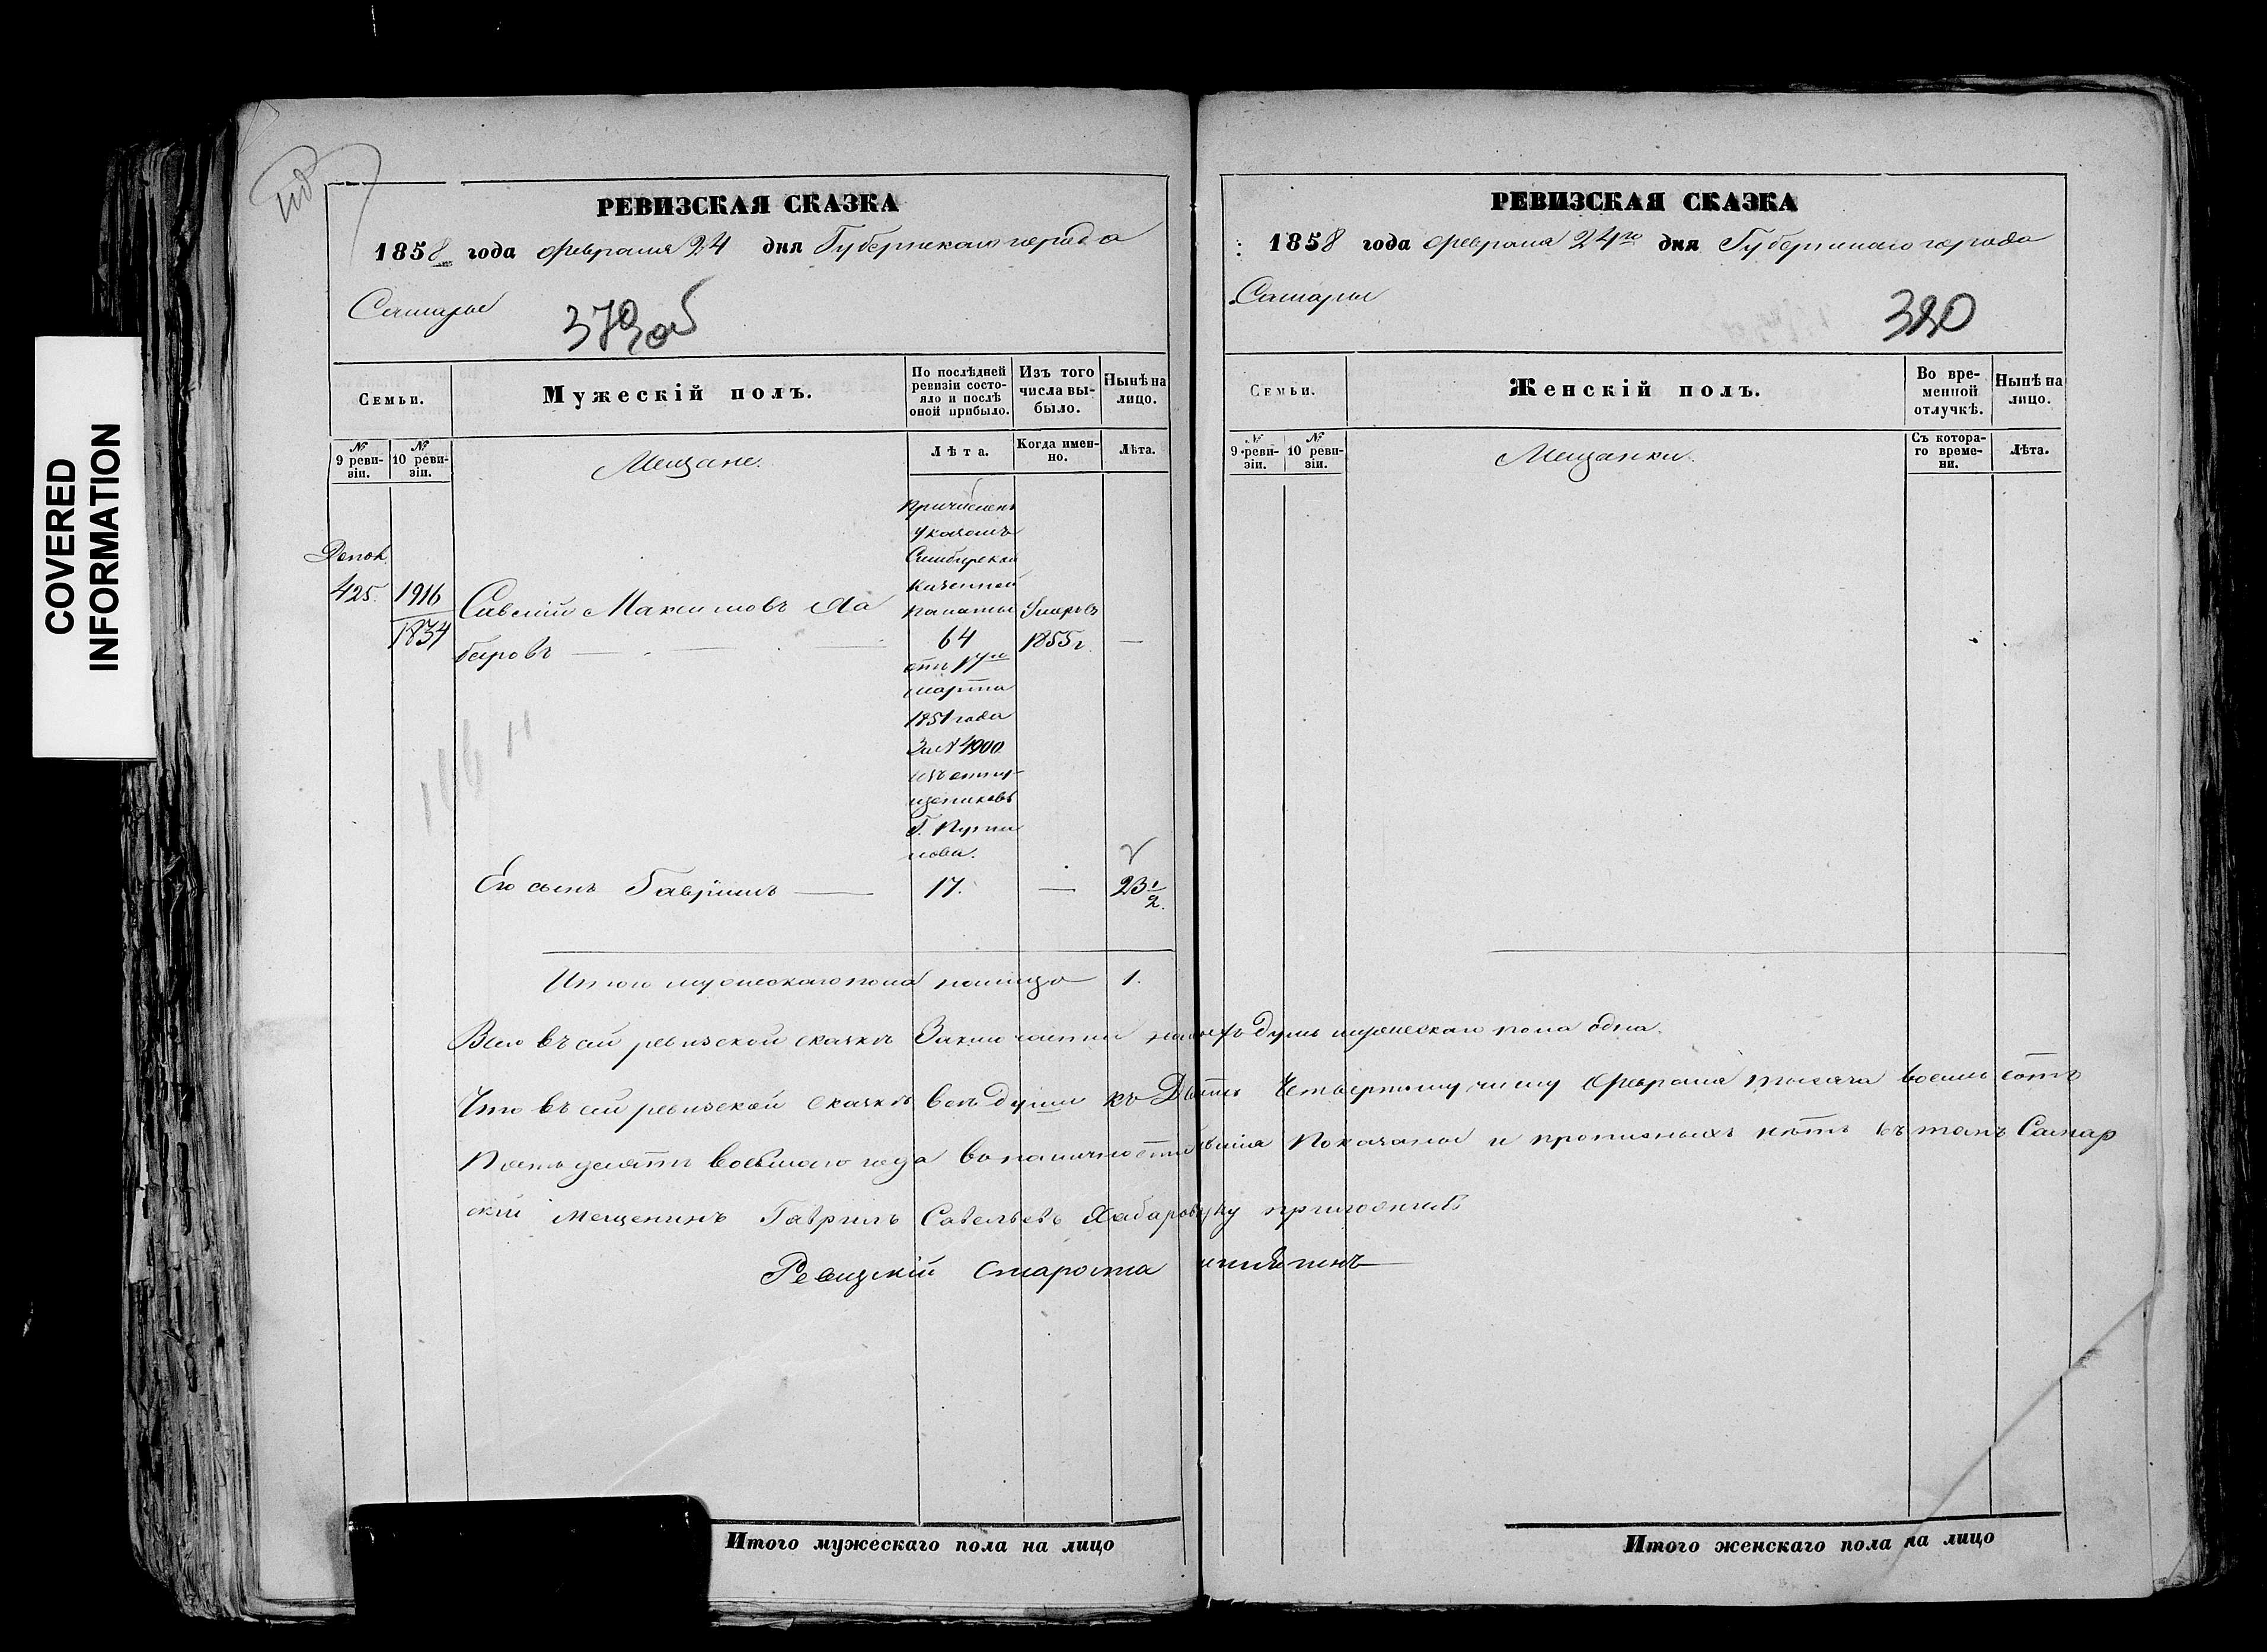 COVERED
INFORMATION
РЕВИЗСКАЯ СКАЗКА
1858 года февраля 24 дня Губернскаго города
Самары
379 об
Семьи.
Мужескій полъ.
По послѣдней ревизіи состояло и послѣ оной прибыло.
Изъ того числа выбыло.
Нынѣ на лицо.
№ 9 ревизіи.
№ 10 ревизіи.
Мещане.
Лѣта.
Когда именно.
Лѣта.
Причисленъ
указомъ
Симбирской
Казенной
палаты
Допол.
425. 1916
1834
Савелій Максимовъ Ха
баровъ
64
Умеръ въ
1855 г.
—
отъ 17го
марта
1851 года
За № 4900
изъ отпу-
щениковъ
Г.
Его сынъ Гаврилъ — 17. — 23 1/2.
Итого мужескаго пола налицо 1.
РЕВИЗСКАЯ СКАЗКА
1858 года февраля 24го дня Губернскаго города
Самары
380
Семьи.
Женскій полъ.
Во временной отлучкѣ.
Нынѣ на лицо.
№ 9 ревизіи.
№ 10 ревизіи.
Мещанки.
Съ котораго времени.
Лѣта.
Всего въ сей ревизской сказкѣ Заключается душъ мужескаго пола одна.
Что въ сей ревизской сказкѣ всѣ души къ Двадцать Четвертому числу февраля тысяча восемь сотъ
Пятьдесятъ восьмаго года въ наличности Показаны и прописныхъ нѣтъ въ томъ Самар
скій мещенинъ Гаврилъ Савельевъ Хабаровъ руку приложилъ
Ревизскій Староста
Итого мужескаго пола на лицо
Итого женскаго пола на лицо